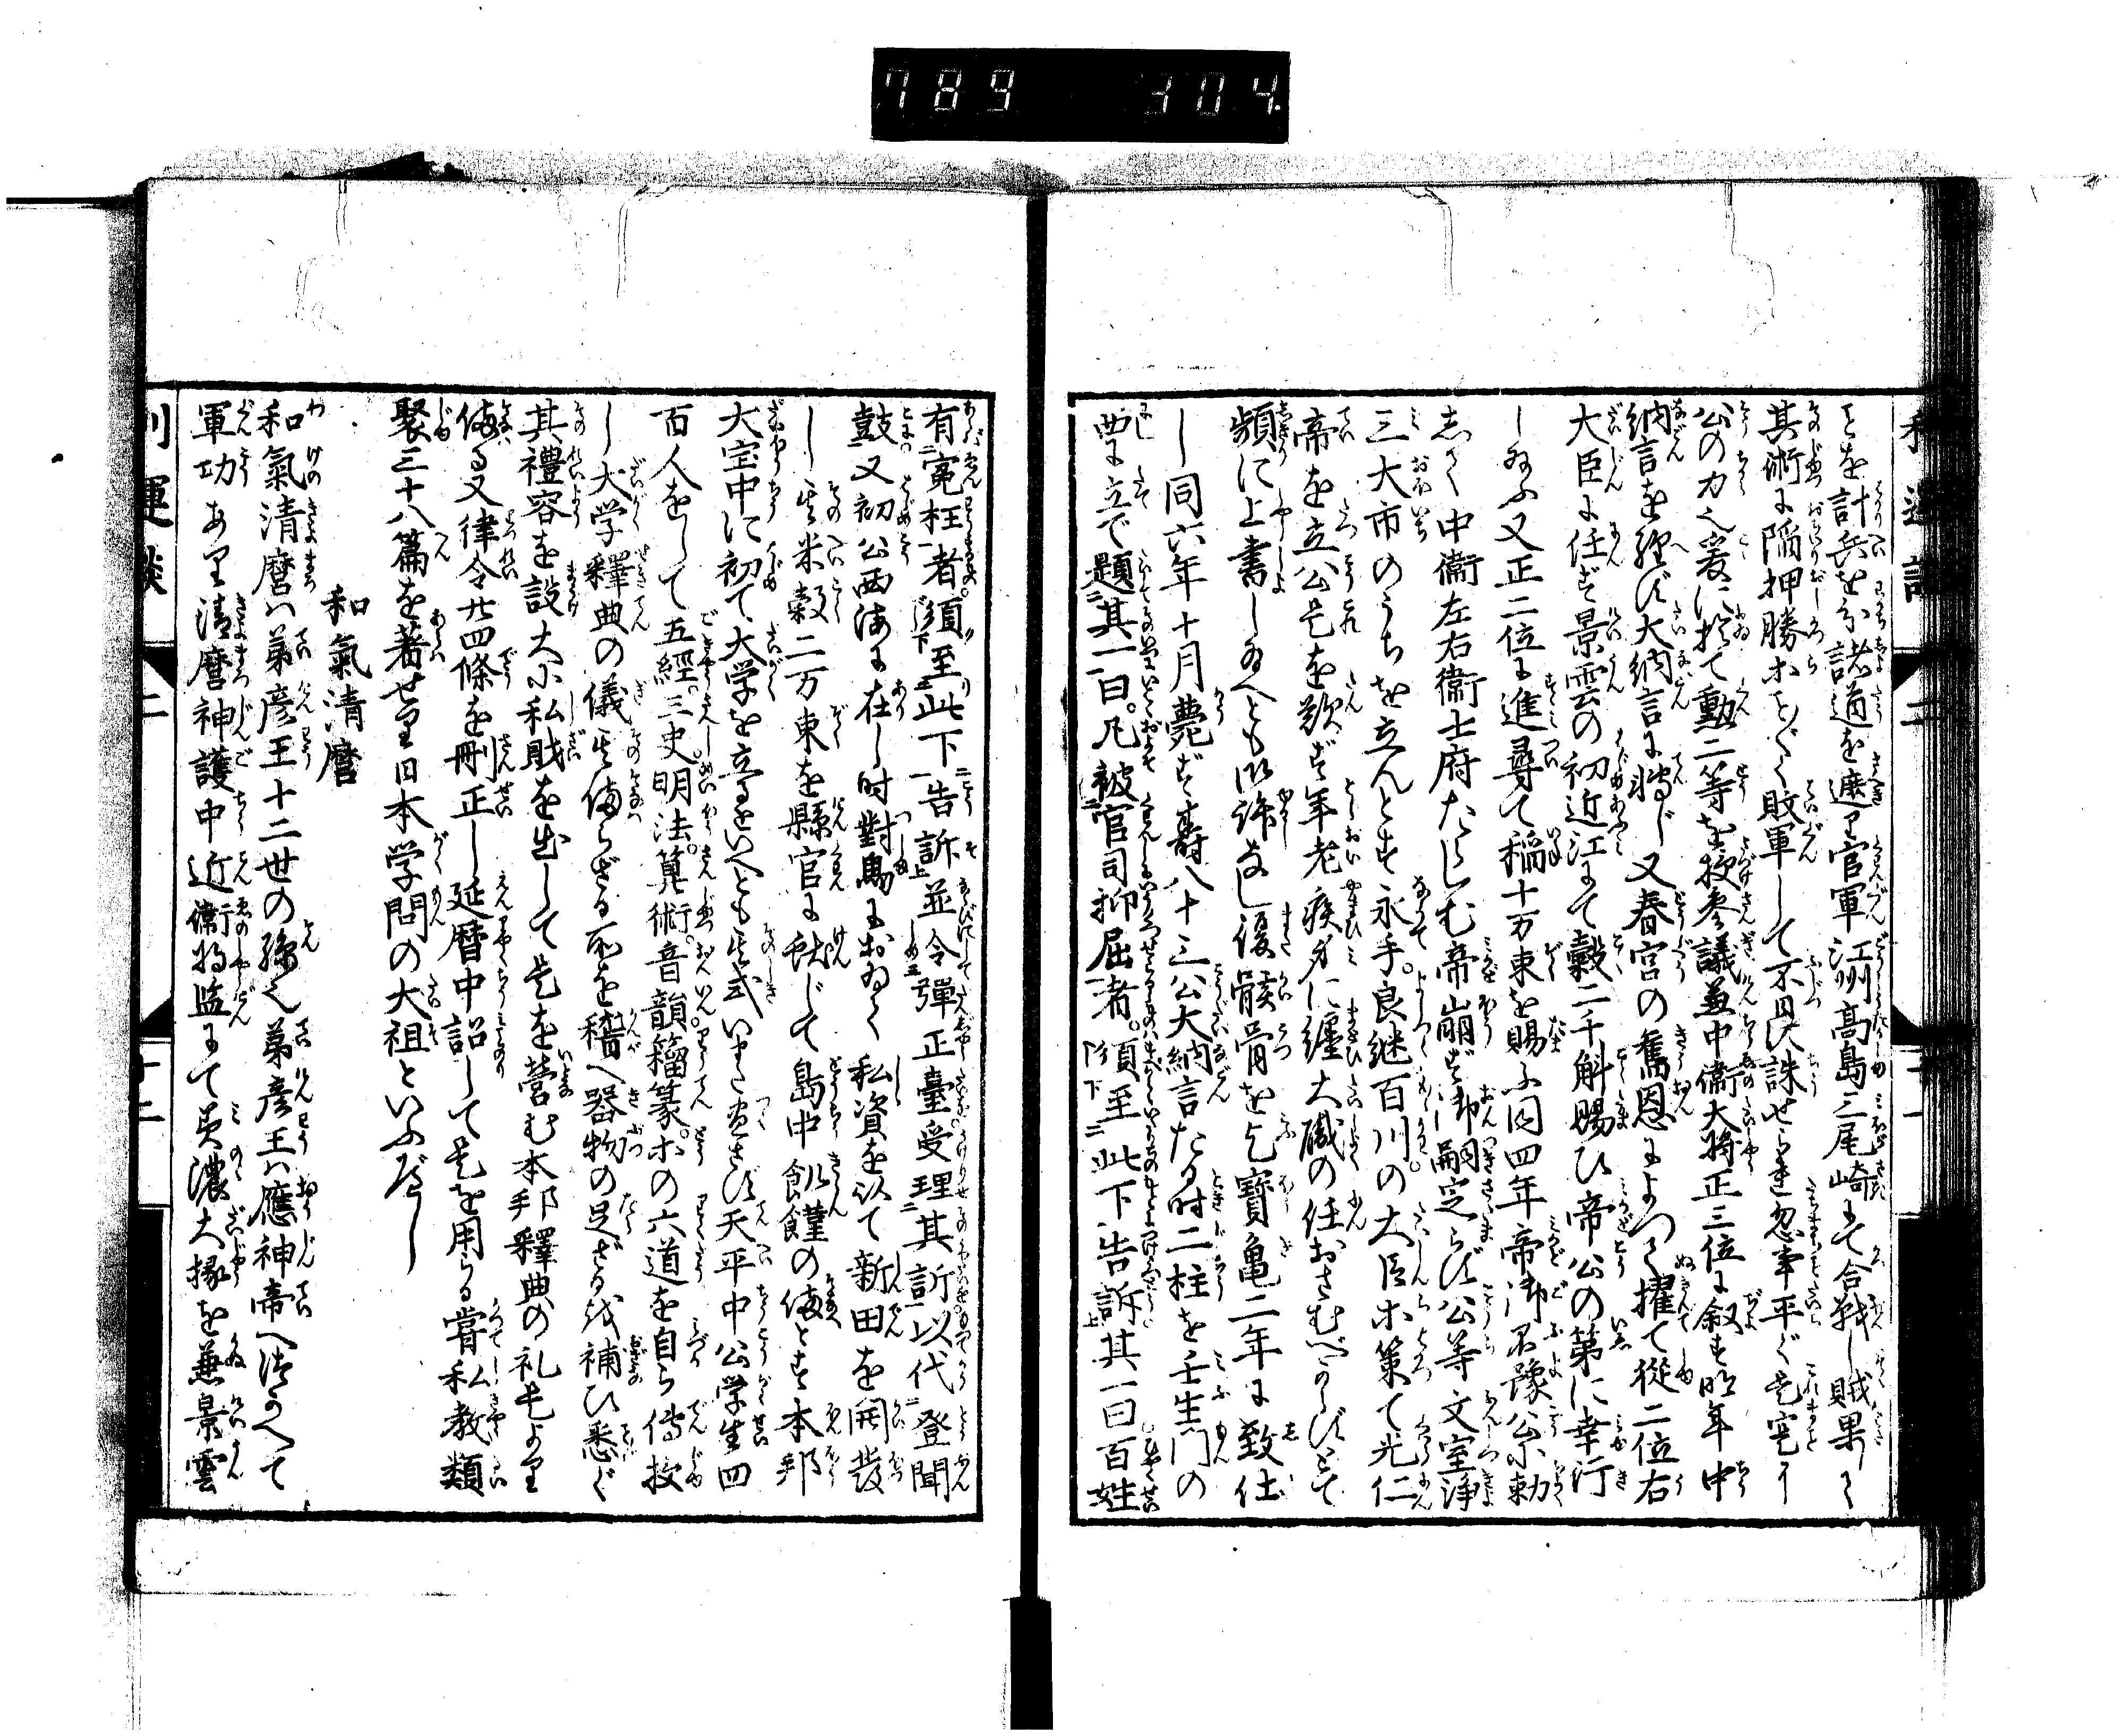 789 304
とを計兵を分諸道を遮り官軍江州高島三尾崎にて合戦し賊果して
其術に陥押勝ホことごとく敗軍して不日に誅せらる忽事平ぐ是寔に
公の力也爰に於て勲二等を授参議兼中衛大将正三位に叙す明年中
納言を経ず大納言に轉じ又春宮の舊恩によつて擢て従二位右
大臣に任ず景雲の初近江にて穀二千斛賜ひ帝公の第に幸行
し給ふ又正二位に進尋て稲十万束を賜ふ同四年帝御不豫公に勅
して中衛左右衛士府たらしむ帝崩ず御嗣定らず公等文室浄
三大市のうちを立んとす永手。良継百川の大臣ホ策て光仁
帝を立公是を歎ず年老疾身に纏大職の任おさむべからずとて
頻に上書し給へとも御許なし復骸骨を乞寶亀二年に致仕
し同六年十月薨ず壽八十三公大納言たる時二柱を壬生門の
西に立て題其一曰。凡被官司抑屈者。須至此下告訴其一曰百姓
有寃枉者須至此下告訴並令彈正臺受理其訴以代登聞
鼓又初公西海に在し時對馬において私資を以て新田を開發
し其米穀二万束を縣官に献じて島中飢饉の備とす本邦
大宝中に初て大学を立るといへとも其式いまだ盡さず天平中公学生四
百人をして五經。三史明法。筭術。音韻籀篆。ホの六道を自ら傳授
し大学釋典の儀其備らざる所を稽へ器物の足ざるを補ひ悉ぐ
其禮容を設大に私財を出して是を營む本邦釋典の礼是より
備る又律令廿四條を刪正し延暦中詔して是を用らる嘗私教類
聚三十八篇を著せり日本学問の大祖といふべし
和氣清麿
和氣清麿ハ弟彦王十二世の孫也弟彦王ハ應神帝へ法かへて
軍功あり清麿神護中近衛将監にて美濃大掾を兼景雲
利運談 二 十二